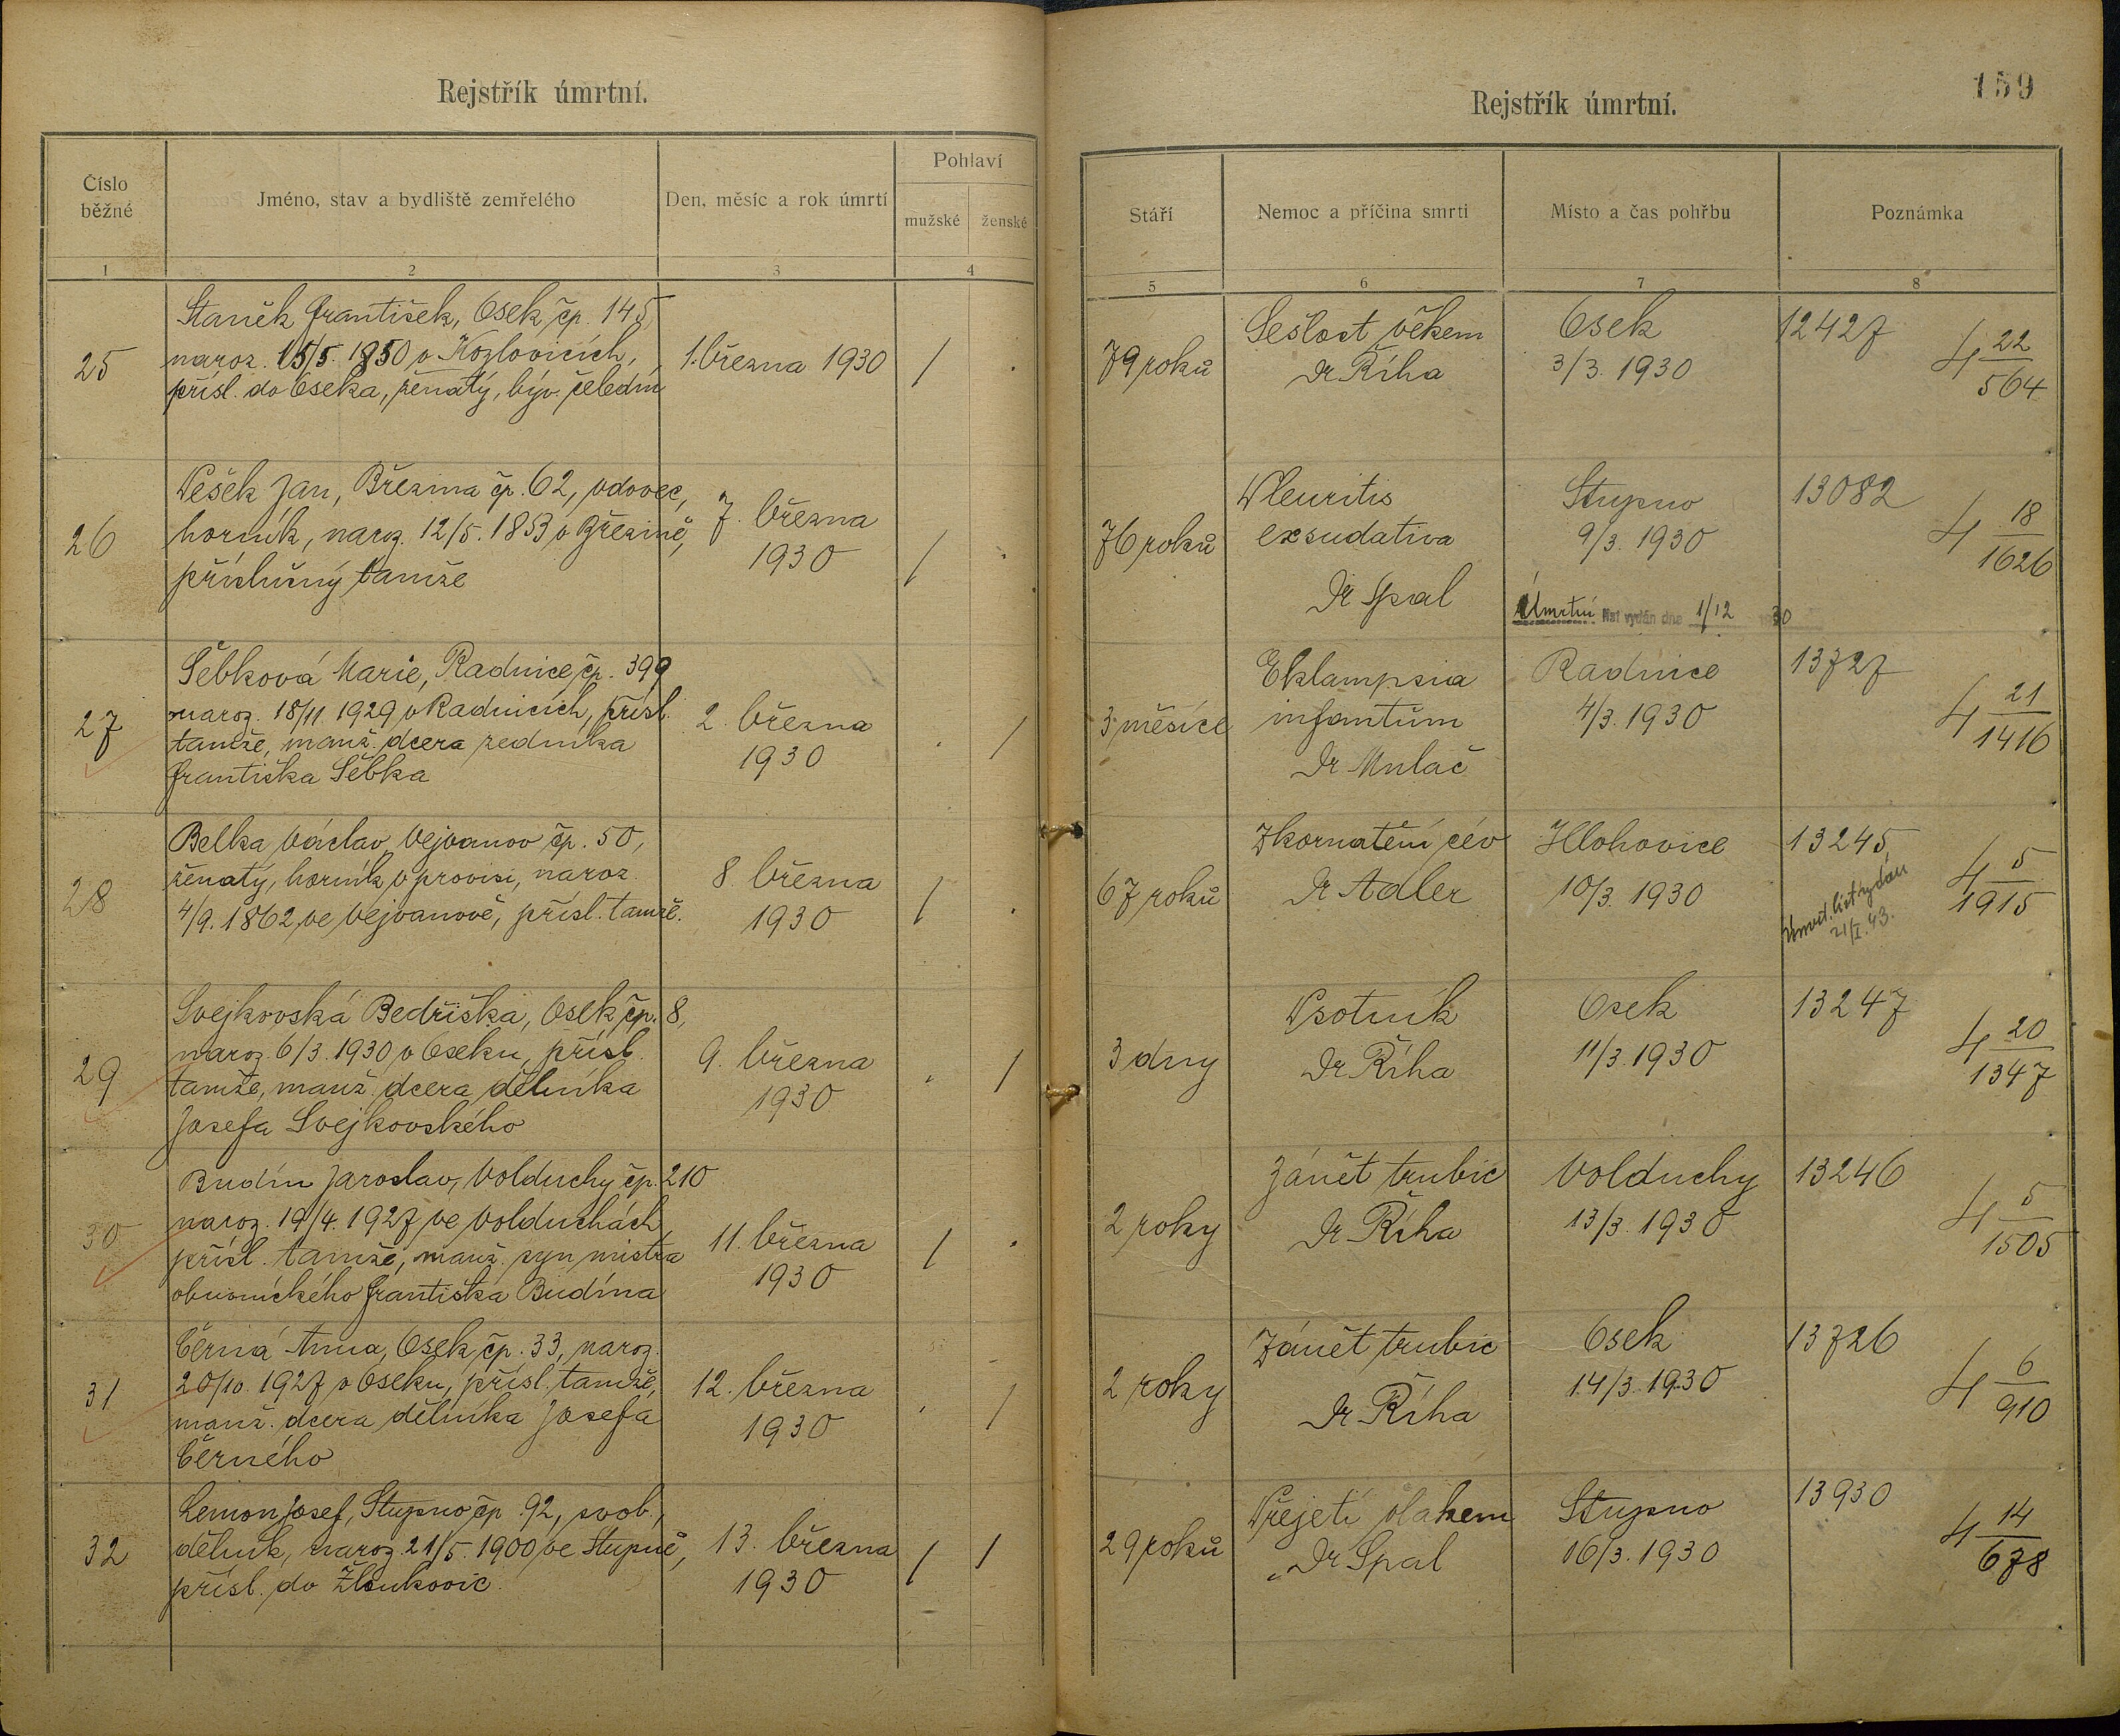 Rejstřík úmrtní.
Číslo běžné
Jméno, stav a bydliště zemřelého
Den, měsíc a rok úmrtí
Pohlaví
mužské
ženské
1
2
3
4
25
Staněk František, Osek čp. 145,
naroz. 15/5. 1850 v Kozlovicích,
přísl. do Oseka, ženatý, býv. čeledín
1. března 1930
/
.
26
Pešek Jan, Březina čp. 62, vdovec,
horník, naroz. 12/5. 1853 v Březině,
příslušný tamže
7. března
1930
/
.
27
Šebková Marie, Radnice čp. 399
naroz. 18/11. 1929 v Radnicích, přísl.
tamže, manž. dcera zedníka
Františka Šebka
2. března
1930
.
/
28
Belka Václav, Vejvanov čp. 50,
ženatý, horník v provisi, naroz.
4/9. 1862 ve Vejvanově, přísl. tamže.
8. března
1930
/
.
29
Svejkovská Bedřiška, Osek čp. 8,
naroz. 6/3. 1930 v Oseku, přísl.
tamže, manž. dcera dělníka
Josefa Svejkovského
9. března
1930
.
/
30
Budín Jaroslav, Volduchy čp. 210
naroz. 19/4. 1927 ve Volduchách
přísl. tamže, manž. syn mistra
obuvnického Františka Budína
11. března
1930
/
.
31
Černá Anna, Osek čp. 33, naroz.
20/10. 1927 v Oseku, přísl. tamže,
manž. dcera dělníka Josefa
Černého
12. března
1930
.
/
32
Lemon Josef, Stupno čp. 92, svob.,
dělník, naroz. 21/5. 1900 ve Stupně,
přísl. do
13. března
1930
/
/
Rejstřík úmrtní.
159
Stáří
Nemoc a příčina smrti
Místo a čas pohřbu
Poznámka
5
6
7
8
79 roků
Sešlost věkem
Dr Říha
Osek
3/3. 1930
12427
4 22/564
76 roků
Pleuritis
exsudativa
Dr Spal
Stupno
9/3. 1930
Úmrtní list vydán dne 1/12 1930
13082
4 18/1626
3 měsíce
Eklampsia
infantum
Dr Mulač
Radnice
4/3. 1930
13727
4 21/1416
67 roků
Zkornatění cév
Dr Adler
Hlohovice
10/3. 1930
13245
Úmrt. list vydán
21/I. 43.
4 5/1915
3 dny
Psotník
Dr Říha
Osek
11/3. 1930
13247
4 20/1347
2 roky
Zánět trubic
Dr Říha
Volduchy
13/3. 1930
13246
4 5/1505
2 roky
Zánět trubic
Dr Říha
Osek
14/3. 1930
13726
4 6/910
29 roků
Přejetí vlakem
Dr Spal
Stupno
16/3. 1930
13930
4 14/678